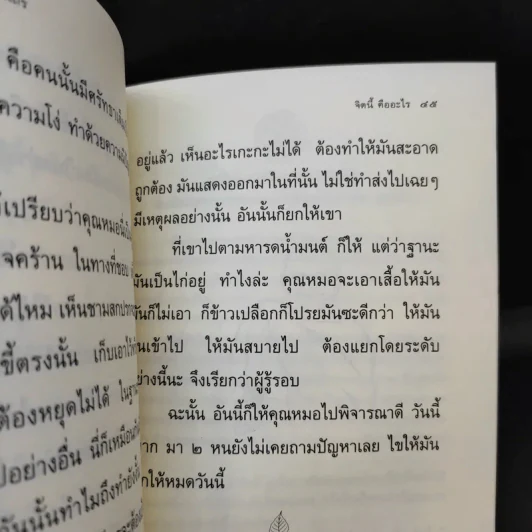 คือคนนั้นมีศรัทธา
ความโง่ ทำด้วยความ
เปรียบว่าคุณหมอ
จคร้าน ในทางที่ชอบ
ได้ไหม เห็นชามสกปรก
ขี้ตรงนั้น เก็บเอาไว้
ต้องหยุดไม่ได้
ปอย่างอื่น นี่ก็เหมือน
วันนั้นทำไมถึงทำ
จิตนี้ คืออะไร ๔๕
อยู่แล้ว เห็นอะไรเกะกะไม่ได้ ต้องทำให้มันสะอาด
ถูกต้อง มันแสดงออกมาในที่นั้น ไม่ใช่ทำส่งไปเฉยๆ
มีเหตุผลอย่างนั้น อันนั้นก็ยกให้เขา
ที่เขาไปตามหารดน้ำมนต์ ก็ให้ แต่ว่าฐานะ
มันเป็นไก่อยู่ ทำไงล่ะ คุณหมอจะเอาเสื้อให้มัน
มันก็ไม่เอา ก็ข้าวเปลือกก็โปรยมันซะดีกว่า ให้มัน
นเข้าไป ให้มันสบายไป ต้องแยกโดยระดับ
ย่างนี้นะ จึงเรียกว่าผู้รู้รอบ
ฉะนั้น อันนี้ก็ให้คุณหมอไปพิจารณาดี วันนี้
าก มา ๒ หนยังไม่เคยถามปัญหาเลย ไขให้มัน
กให้หมดวันนี้